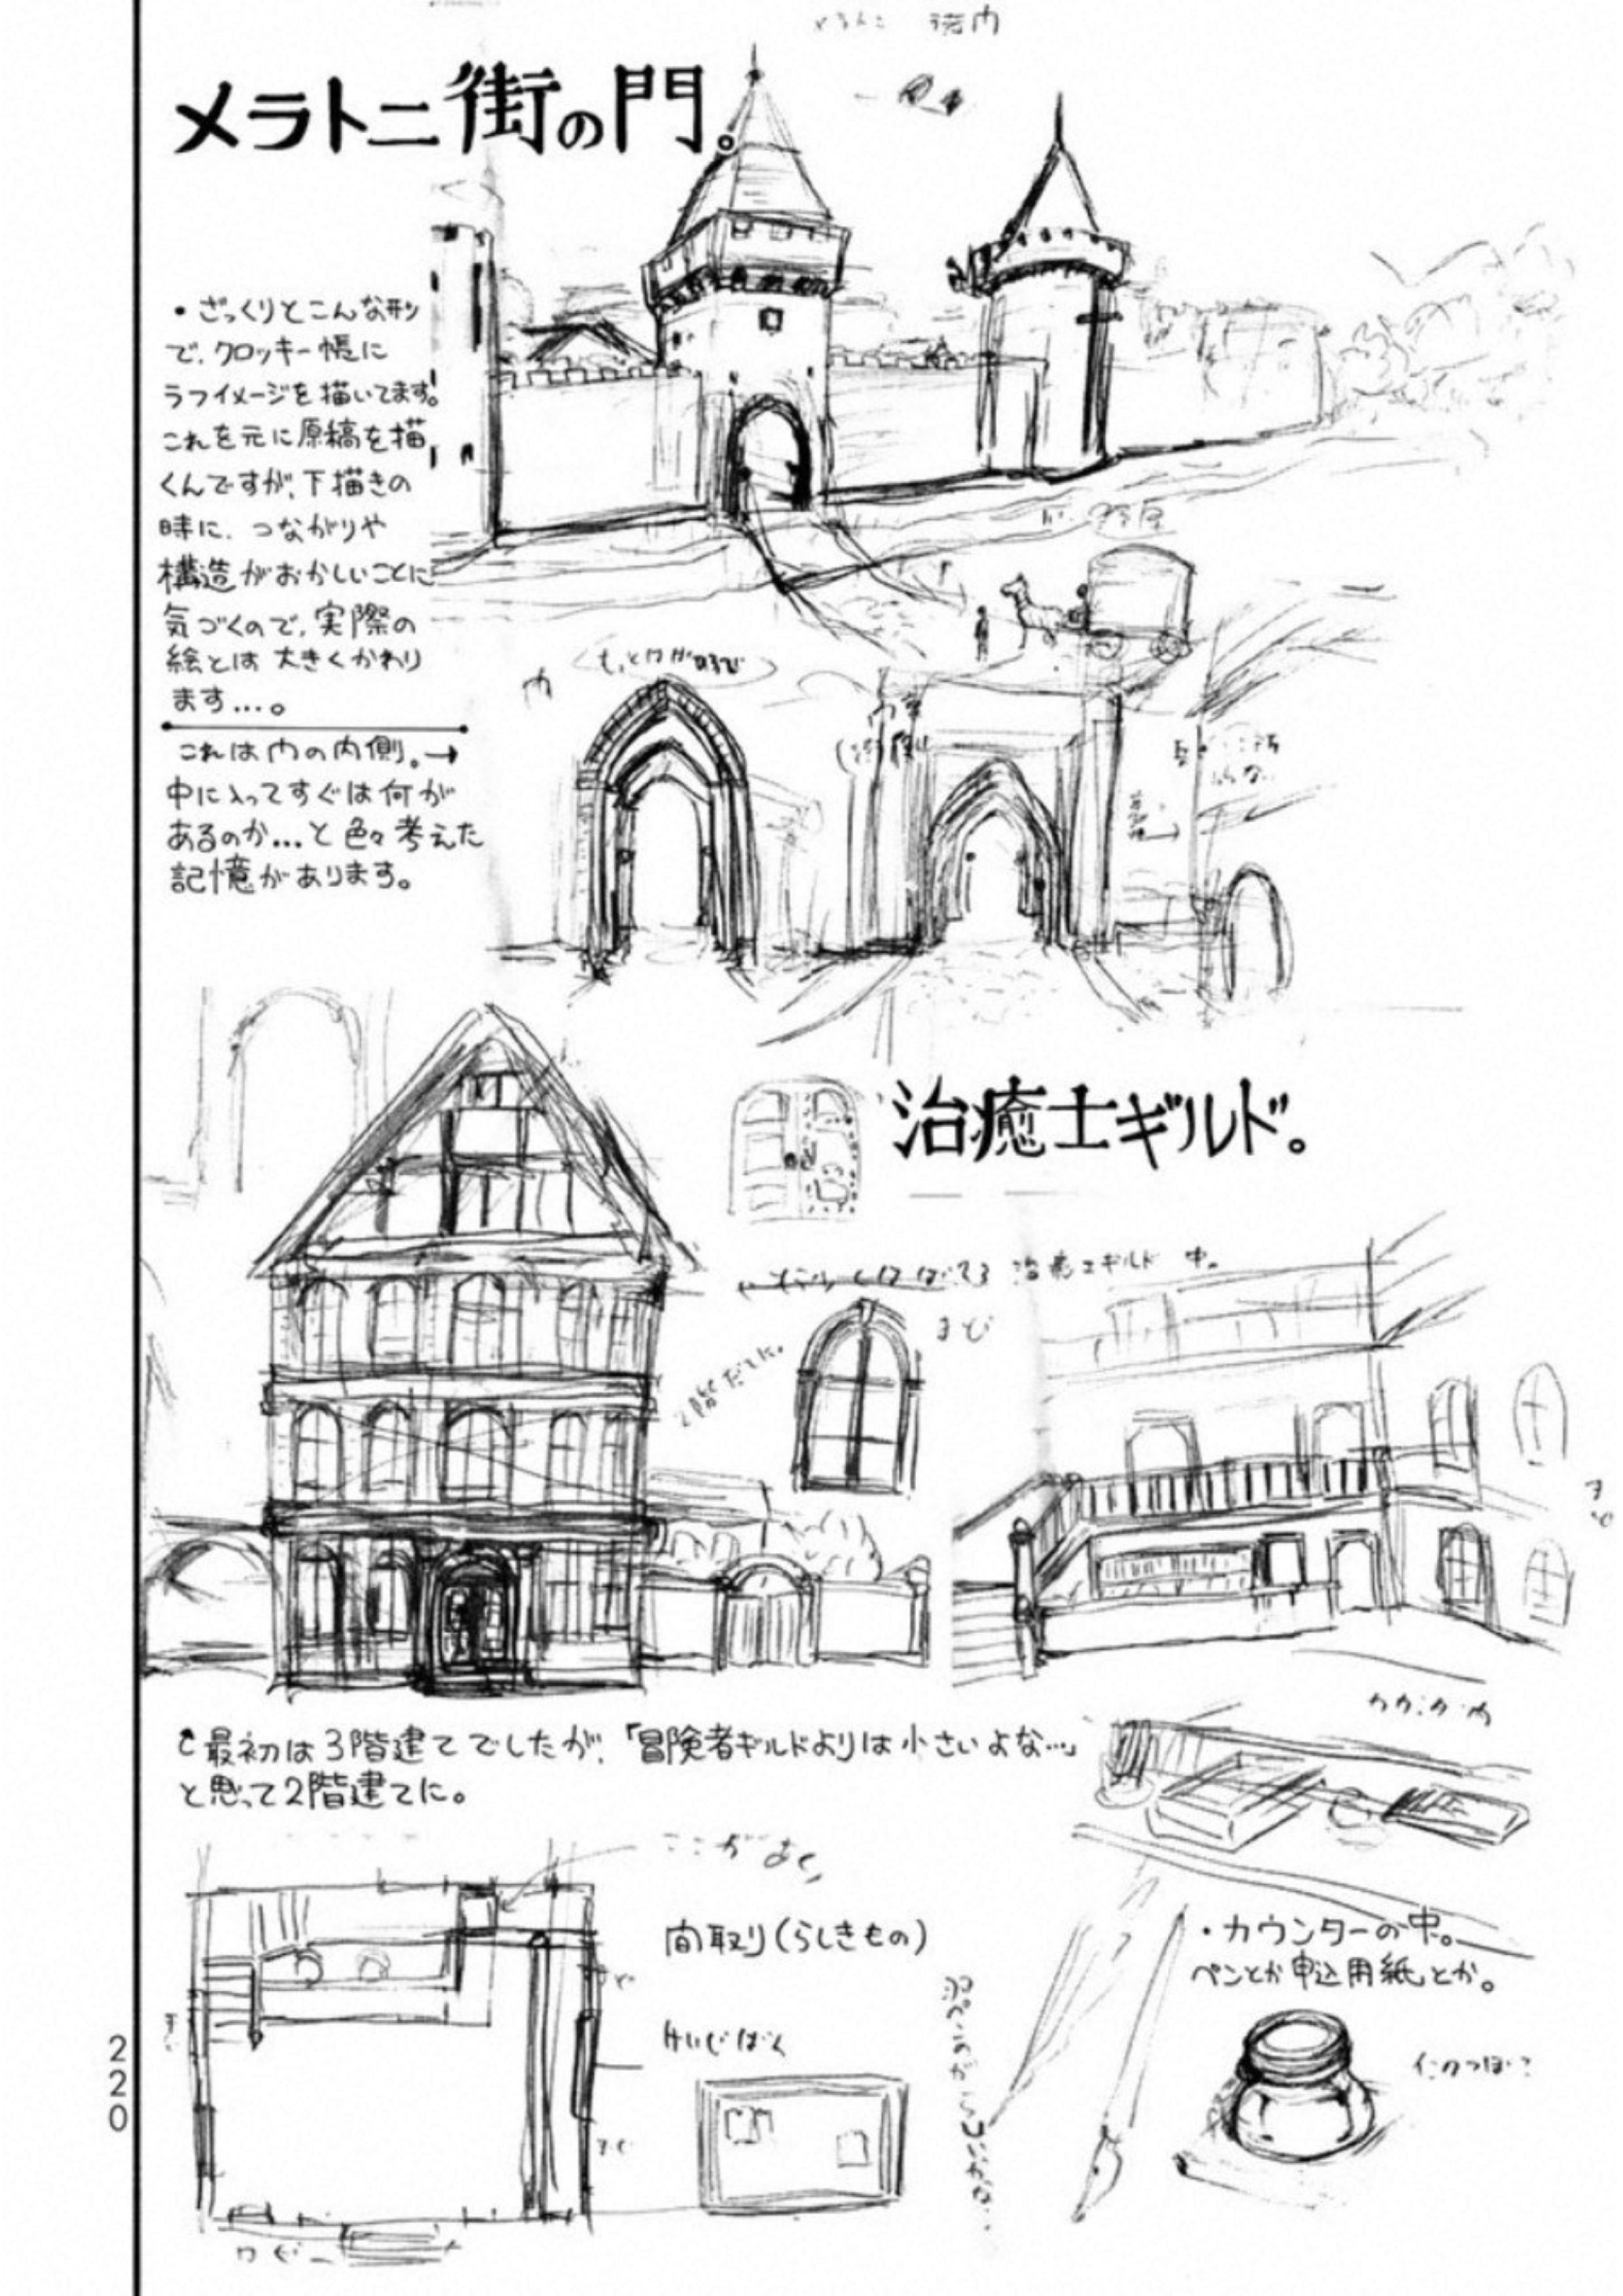 メラトニ街の門。
・ざっくりとこんな形
で、クロッキー帳に
ラフイメージを描いてます。
これを元に原稿を描
くんですが、下描きの
時に、つながりや
構造がおかしいことに
気づくので、実際の
絵とは大きくかわり
ます…。
これは門の内側。→
中に入ってすぐは何が
あるのか…と色々考えた
記憶があります。
治癒士ギルド。
治癒士ギルド 中。
まど
2階だてに。
最初は3階建てでしたが、「冒険者ギルドよりは小さいよな…」
と思って2階建てに。
ここがあく
間取り(らしきもの)
・カウンターの中。
ペンとか申込用紙とか。
けいじばん
まど
220